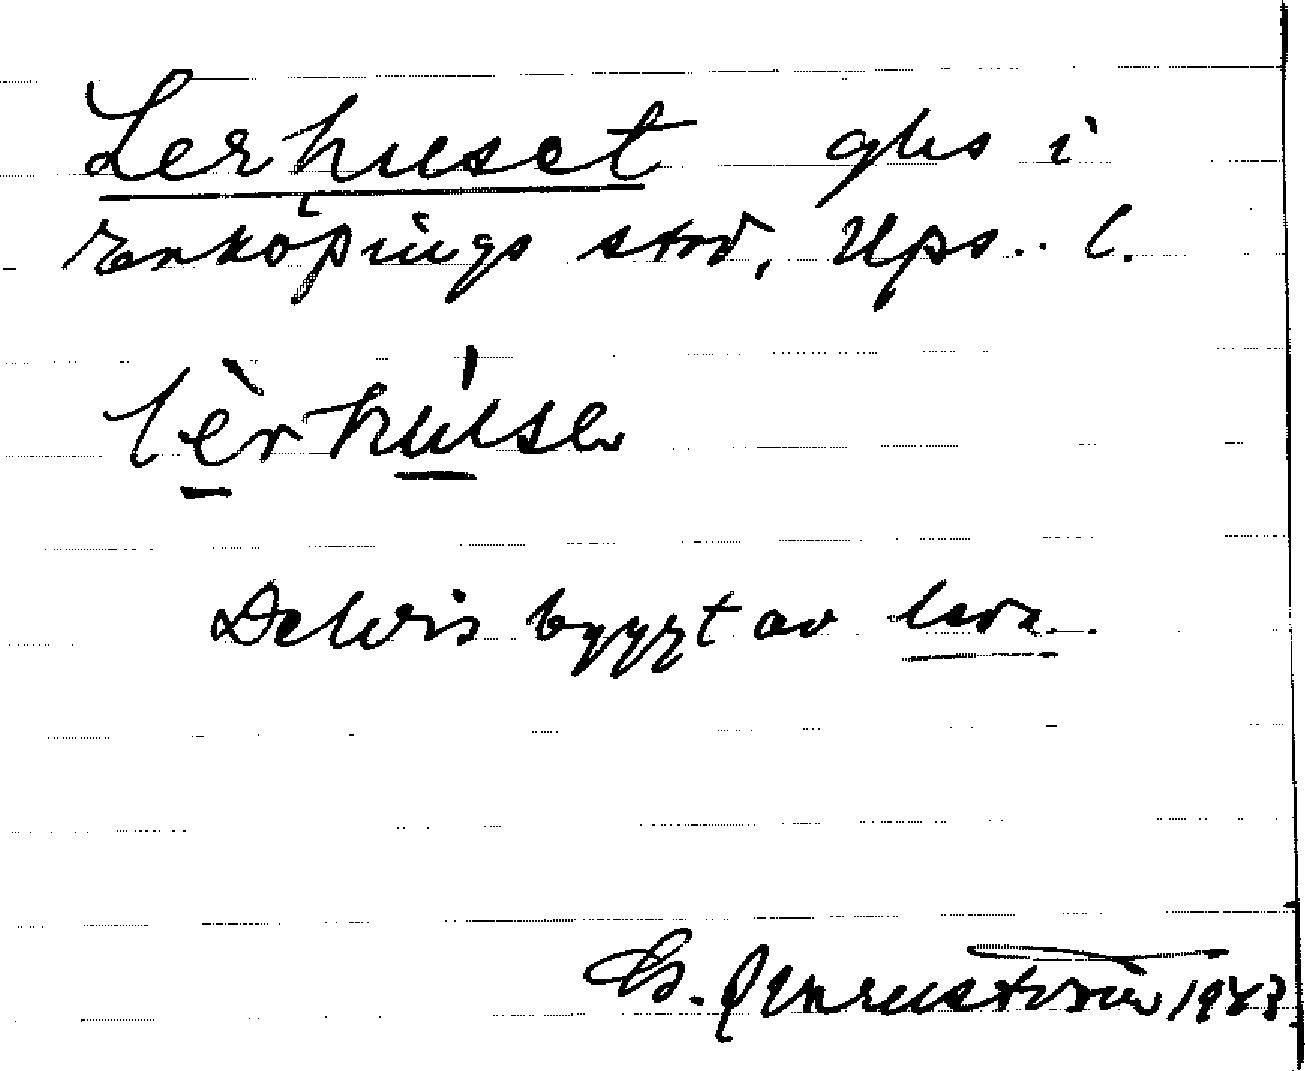 Lerhuset ghs i
Enköpings stad, Ups. l.
lèrhúse
Delvis byggt av lera.
1943